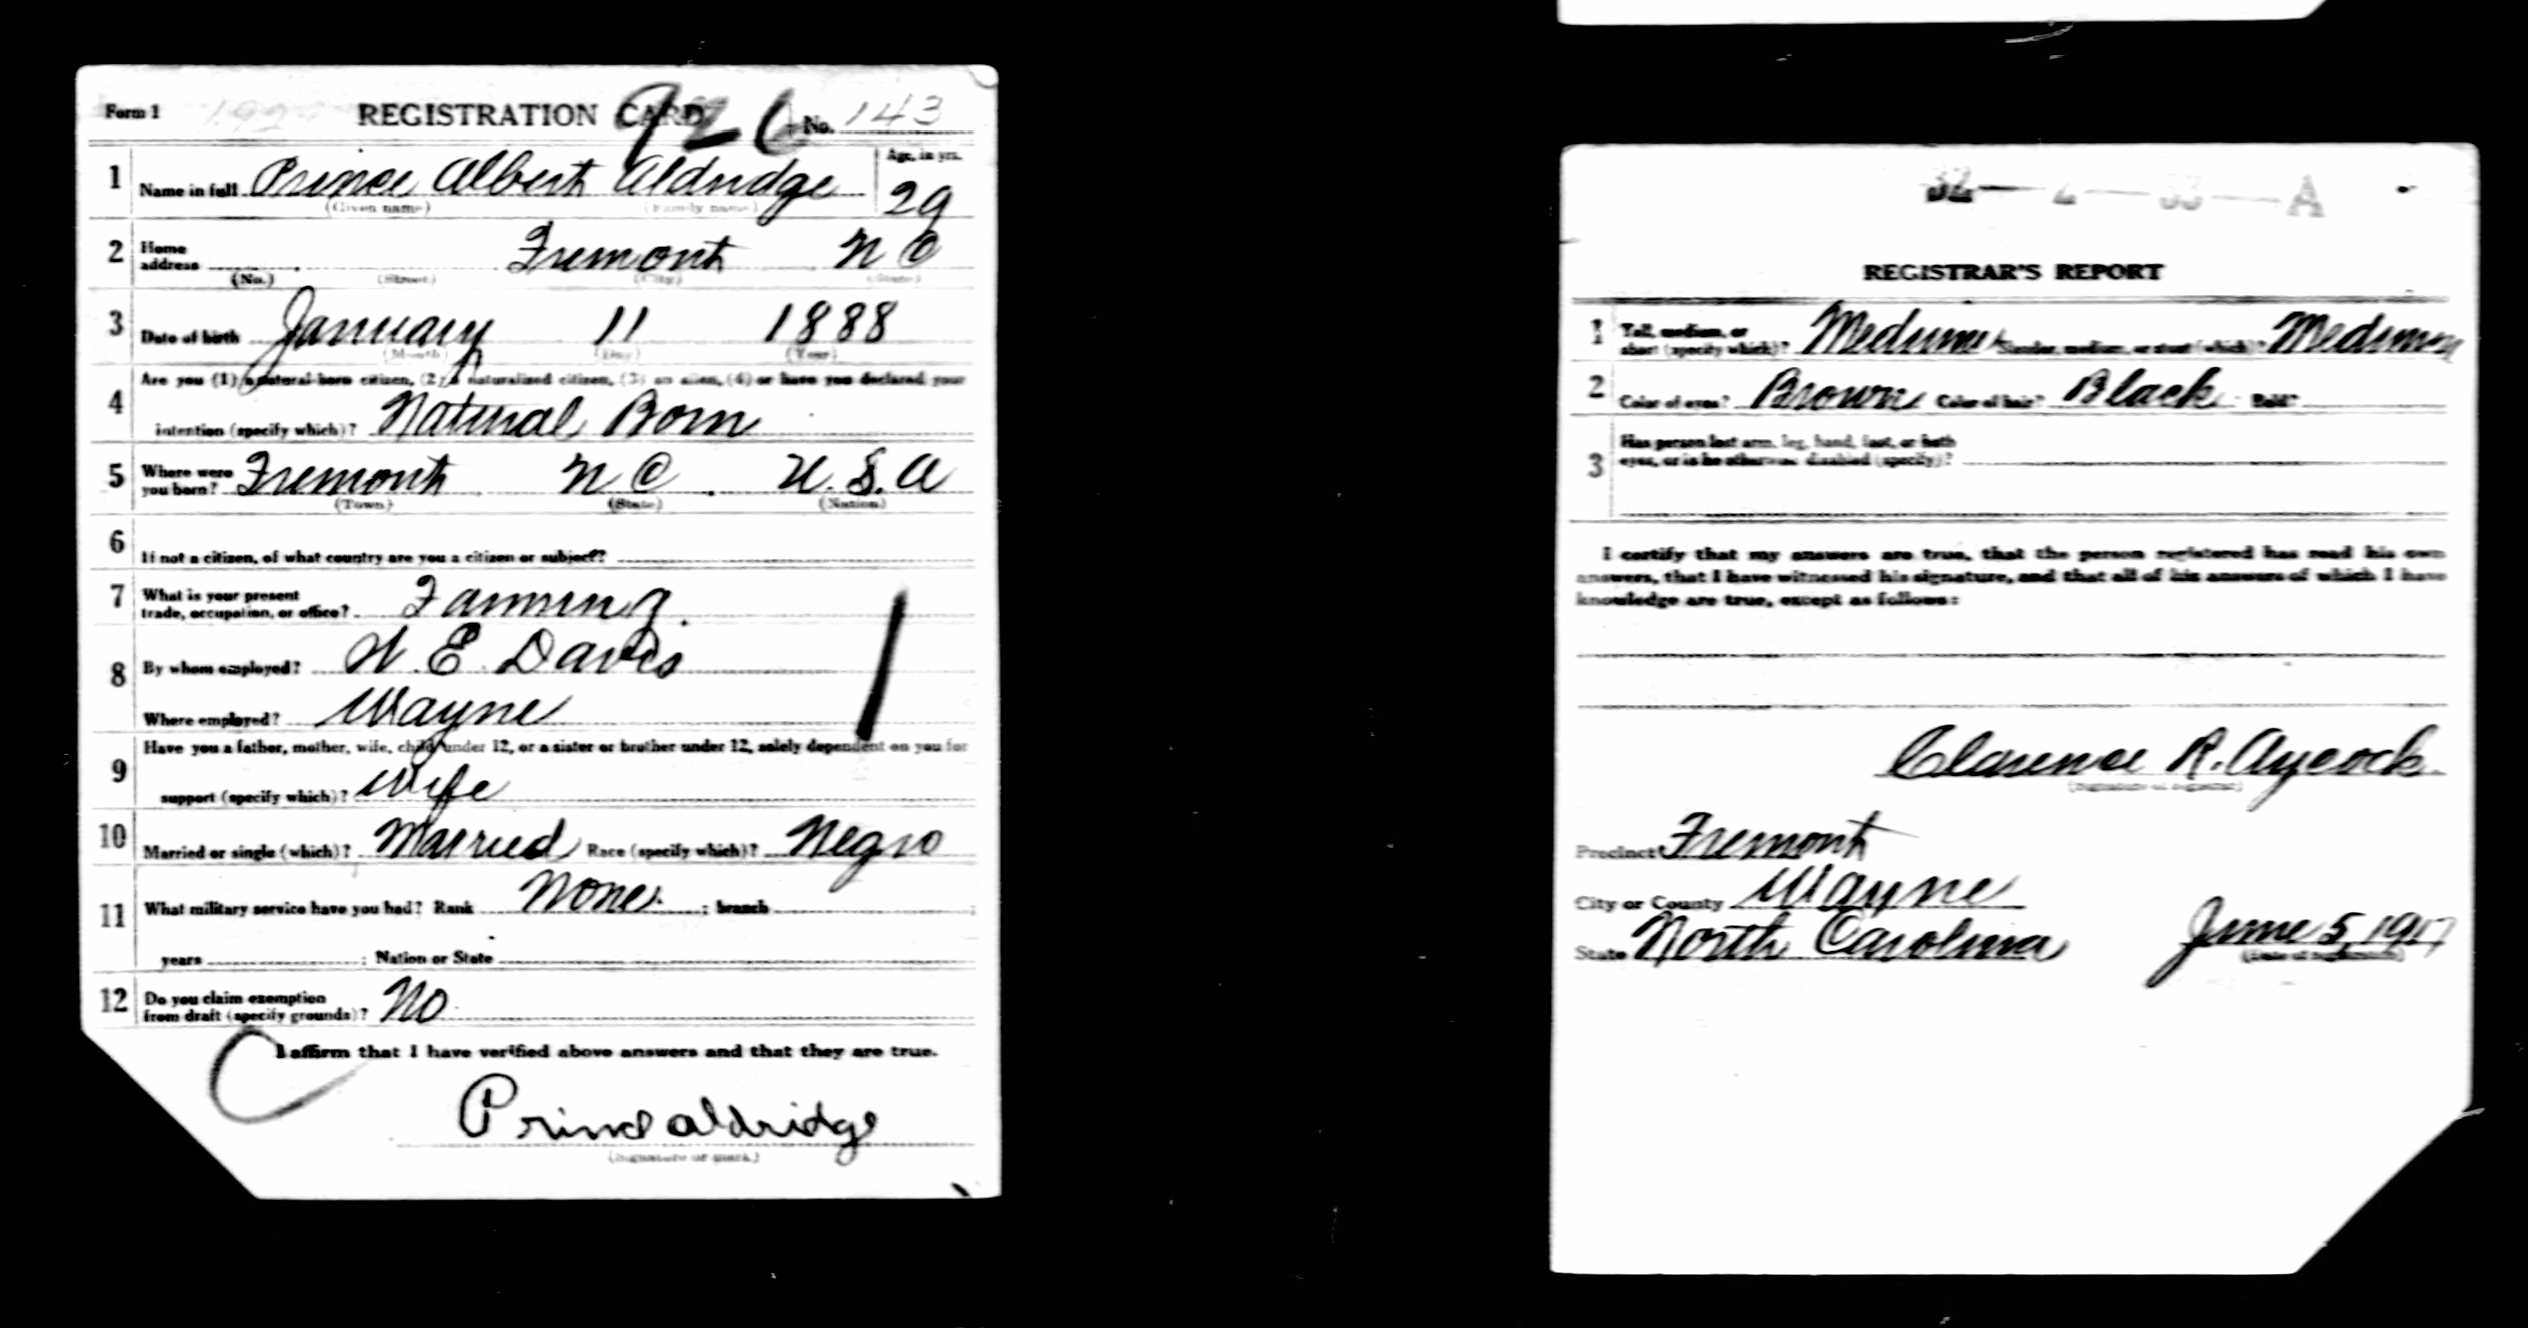 Form 1 REGISTRATION CARD No. 143
926
1 Name in full Prince Albert Aldridge Age, in yrs. 29
(Given name) (Family name)
2 Home address Fremont N C
(No.) (Street) (City) (State)
3 Date of birth January 11 1888
(Month) (Day) (Year)
4 Are you (1) a natural-born citizen, (2) a naturalized citizen, (3) an alien, (4) or have you declared your
intention (specify which)? Natural Born
5 Where were you born? Fremont N C U. S. A
(Town) (State) (Nation)
6 If not a citizen, of what country are you a citizen or subject?
7 What is your present trade, occupation, or office? Farming
8 By whom employed? W. E. Davis
Where employed? Wayne
9 Have you a father, mother, wife, child under 12, or a sister or brother under 12, solely dependent on you for
support (specify which)? Wife
10 Married or single (which)? Married Race (specify which)? Negro
11 What military service have you had? Rank None ; branch ;
years ; Nation or State
12 Do you claim exemption from draft (specify grounds)? No
I affirm that I have verified above answers and that they are true.
Prince Aldridge
(Signature or mark)
A
REGISTRAR'S REPORT
1 Tall, medium, or short (specify which)? Medium Slender, medium, or stout (which)? Medium
2 Color of eyes? Brown Color of hair? Black Bald?
3 Has person lost arm, leg, hand, foot, or both
eyes, or is he otherwise disabled (specify)?
I certify that my answers are true, that the person registered has read his own
answers, that I have witnessed his signature, and that all of his answers of which I have
knowledge are true, except as follows:
Clarence R. Aycock
(Signature of registrar)
Precinct Fremont
City or County Wayne
State North Carolina June 5, 1917
(Date of registration)